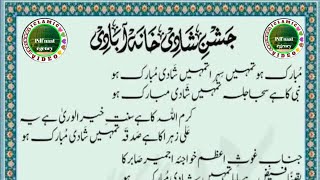 جشنِ شادی خانہ آبادی
ISLAMIC
Pdf naat
egency
VIDEO
ISLAMIC
Pdf naat
egency
VIDEO
مبارک ہو تمہیں سہرا تمہیں شادی مبارک ہو
نبی کا ہے سجا جلسہ تمہیں شادی مبارک ہو
کرم اللہ کا ہے سنت خیر الوریٰ ہے یہ
علی زہرا کا ہے صدقہ تمہیں شادی مبارک ہو
جناب غوث اعظم خواجئہ اجمیر صابر کا
تمہیں شادی مبارک ہو